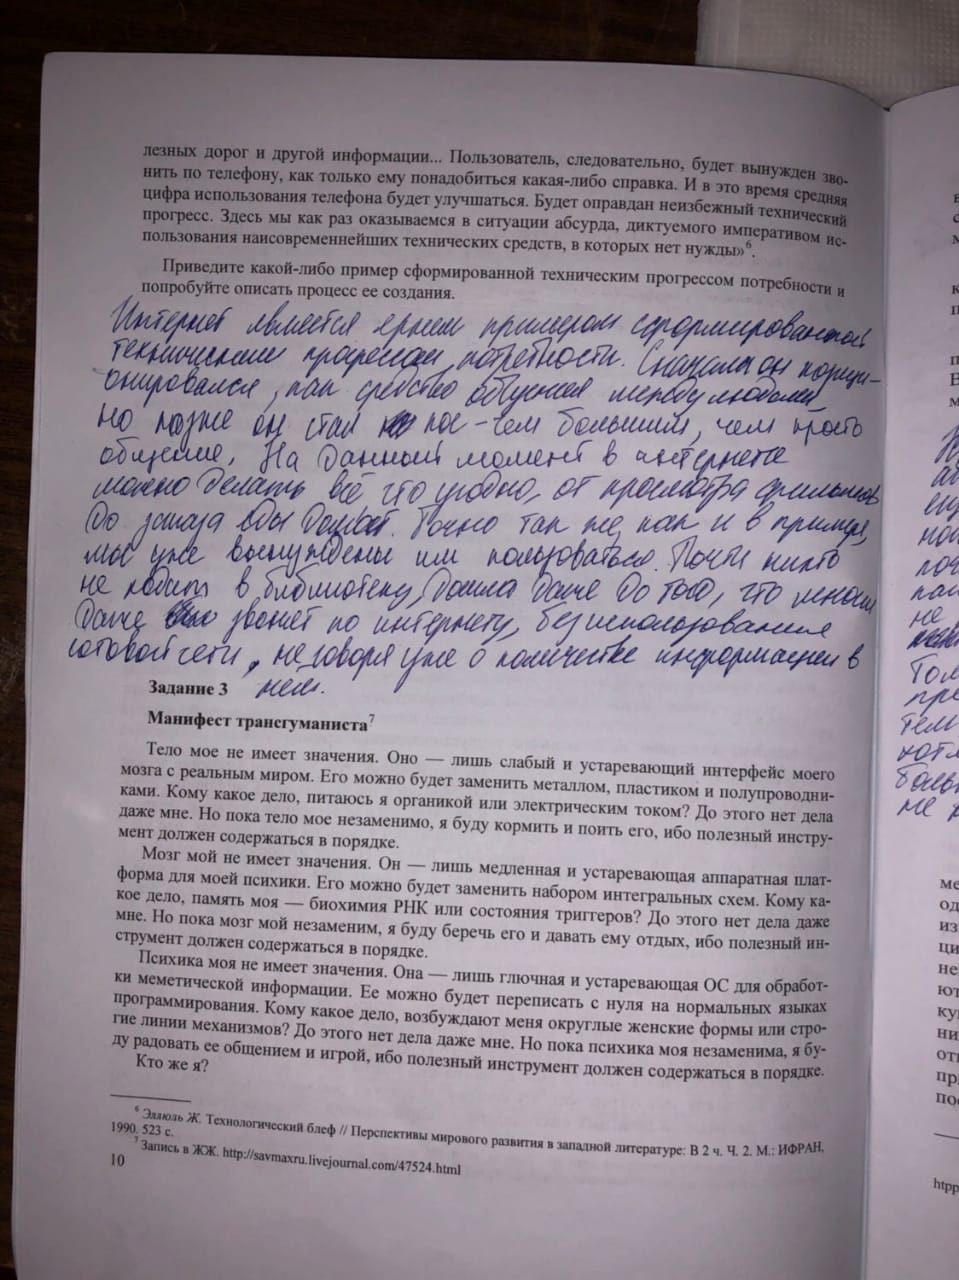 лезных дорог и другой информации... Пользователь, следовательно, будет вынужден зво-
нить по телефону, как только ему понадобиться какая-либо справка. И в это время средняя
цифра использования телефона будет улучшаться. Будет оправдан неизбежный технический
прогресс. Здесь мы как раз оказываемся в ситуации абсурда, диктуемого императивом ис-
пользования наисовременнейших технических средств, в которых нет нужды»6.
Приведите какой-либо пример сформированной техническим прогрессом потребности и
попробуйте описать процесс ее создания.
Интернет является ярким примером сформированной
техническим прогрессом потребности. Сначала он позици-
онировался, как средство общения между людьми,
но позже он стал кое-чем большим, чем просто
общение. На данный момент в интернете
можно делать всё что угодно, от просмотра фильмов
до заказа еды домой. Точно так же, как и в примере,
мы уже вынуждены им пользоваться. Почти никто
не ходит в библиотеку, дошло даже до того, что многие
даже звонят по интернету, без использования
сотовой сети, не говоря уже о количестве информации в
нём.
Задание 3
Манифест трансгуманиста7
Тело мое не имеет значения. Оно — лишь слабый и устаревающий интерфейс моего
мозга с реальным миром. Его можно будет заменить металлом, пластиком и полупроводни-
ками. Кому какое дело, питаюсь я органикой или электрическим током? До этого нет дела
даже мне. Но пока тело мое незаменимо, я буду кормить и поить его, ибо полезный инстру-
мент должен содержаться в порядке.
Мозг мой не имеет значения. Он — лишь медленная и устаревающая аппаратная плат-
форма для моей психики. Его можно будет заменить набором интегральных схем. Кому ка-
кое дело, память моя — биохимия РНК или состояния триггеров? До этого нет дела даже
мне. Но пока мозг мой незаменим, я буду беречь его и давать ему отдых, ибо полезный ин-
струмент должен содержаться в порядке.
Психика моя не имеет значения. Она — лишь глючная и устаревающая ОС для обработ-
ки меметической информации. Ее можно будет переписать с нуля на нормальных языках
программирования. Кому какое дело, возбуждают меня округлые женские формы или стро-
гие линии механизмов? До этого нет дела даже мне. Но пока психика моя незаменима, я бу-
ду радовать ее общением и игрой, ибо полезный инструмент должен содержаться в порядке.
Кто же я?
6 Эллюль Ж. Технологический блеф // Перспективы мирового развития в западной литературе: В 2 ч. Ч. 2. М.: ИФРАН,
1990. 523 с.
7 Запись в ЖЖ. http://savmaxru.livejournal.com/47524.html
10